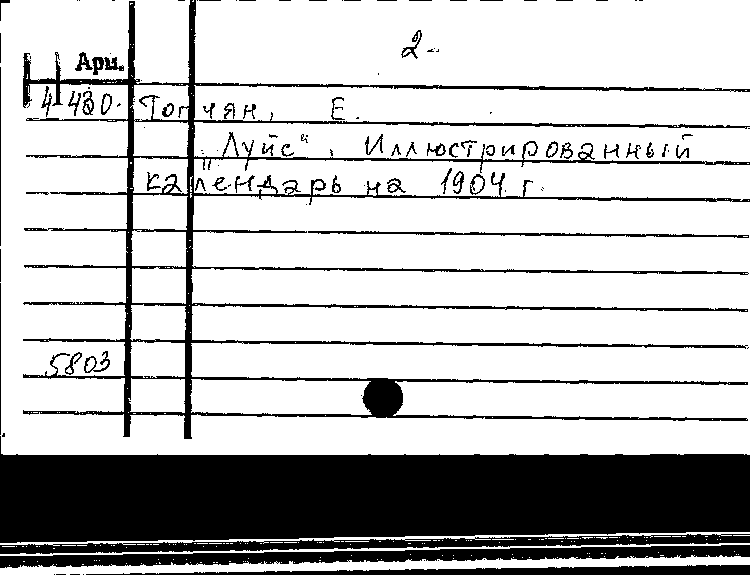 2-
Арм.
4 430. Топчян, Е.
„Луйс“. Иллюстрированный
календарь на 1904 г.
5803